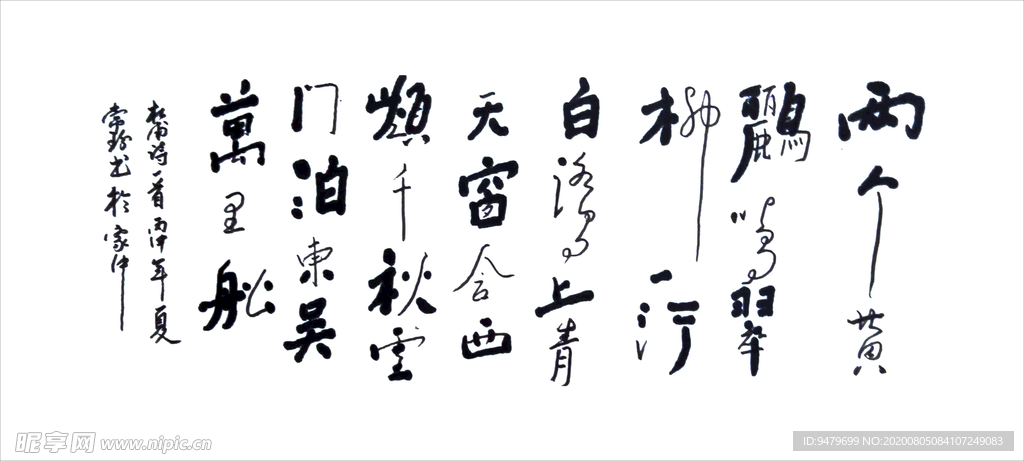 兩个黄
鸝鸣翠
柳一行
白鹭上青
天窗含西
嶺千秋雪
门泊東吴
萬里船
杜甫诗一首 丙申年夏
书於家中
昵享网 www.nipic.cn
ID:9479699 NO:20200805084107249083